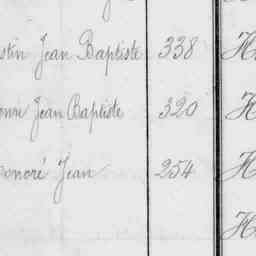 stin Jean Baptiste 338 H
Jean Baptiste 320 H
onoré Jean 254 H
H